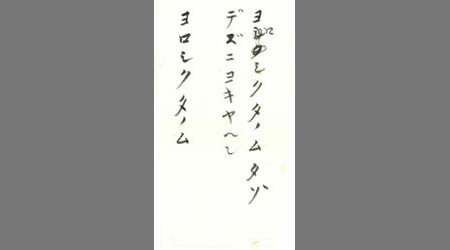 ヨロシクタノムタゾ
デズニヨキヤヘシ
ヨロシクタノム